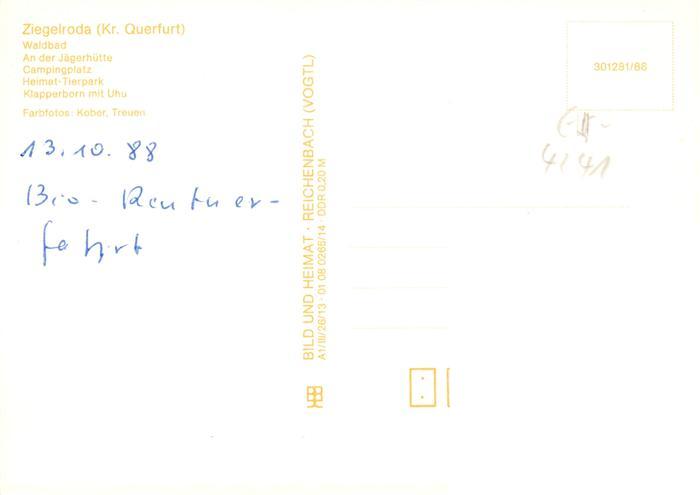 Ziegelroda (Kr. Querfurt)
Waldbad
An der Jägerhütte
Campingplatz
Heimat-Tierpark
Klapperborn mit Uhu
Farbfotos: Kober, Treuen
13.10.88
Bio-Rentner-
fahrt
BILD UND HEIMAT · REICHENBACH (VOGTL)
A1/III/26/13 · 01 08 0266/14 · DDR 0,20 M
301281/88
4241